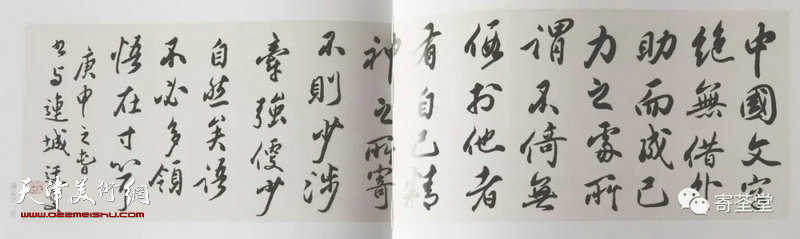 中國文字
絕無借外
助而成己
力之處所
謂不倚無
假於他者
有自己精
神之所寄
不則少涉
牽強便少
自然矣語
不必多領
悟在寸
庚申之春
书与連城
天津美術網
www.022meishu.com
寄荃堂